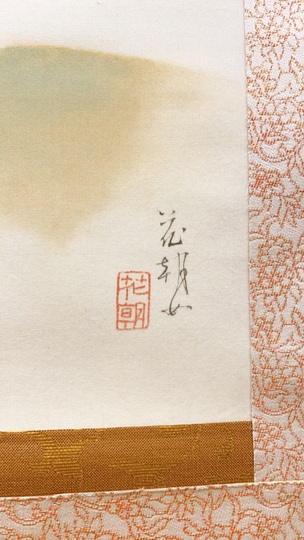 花朝女
花朝